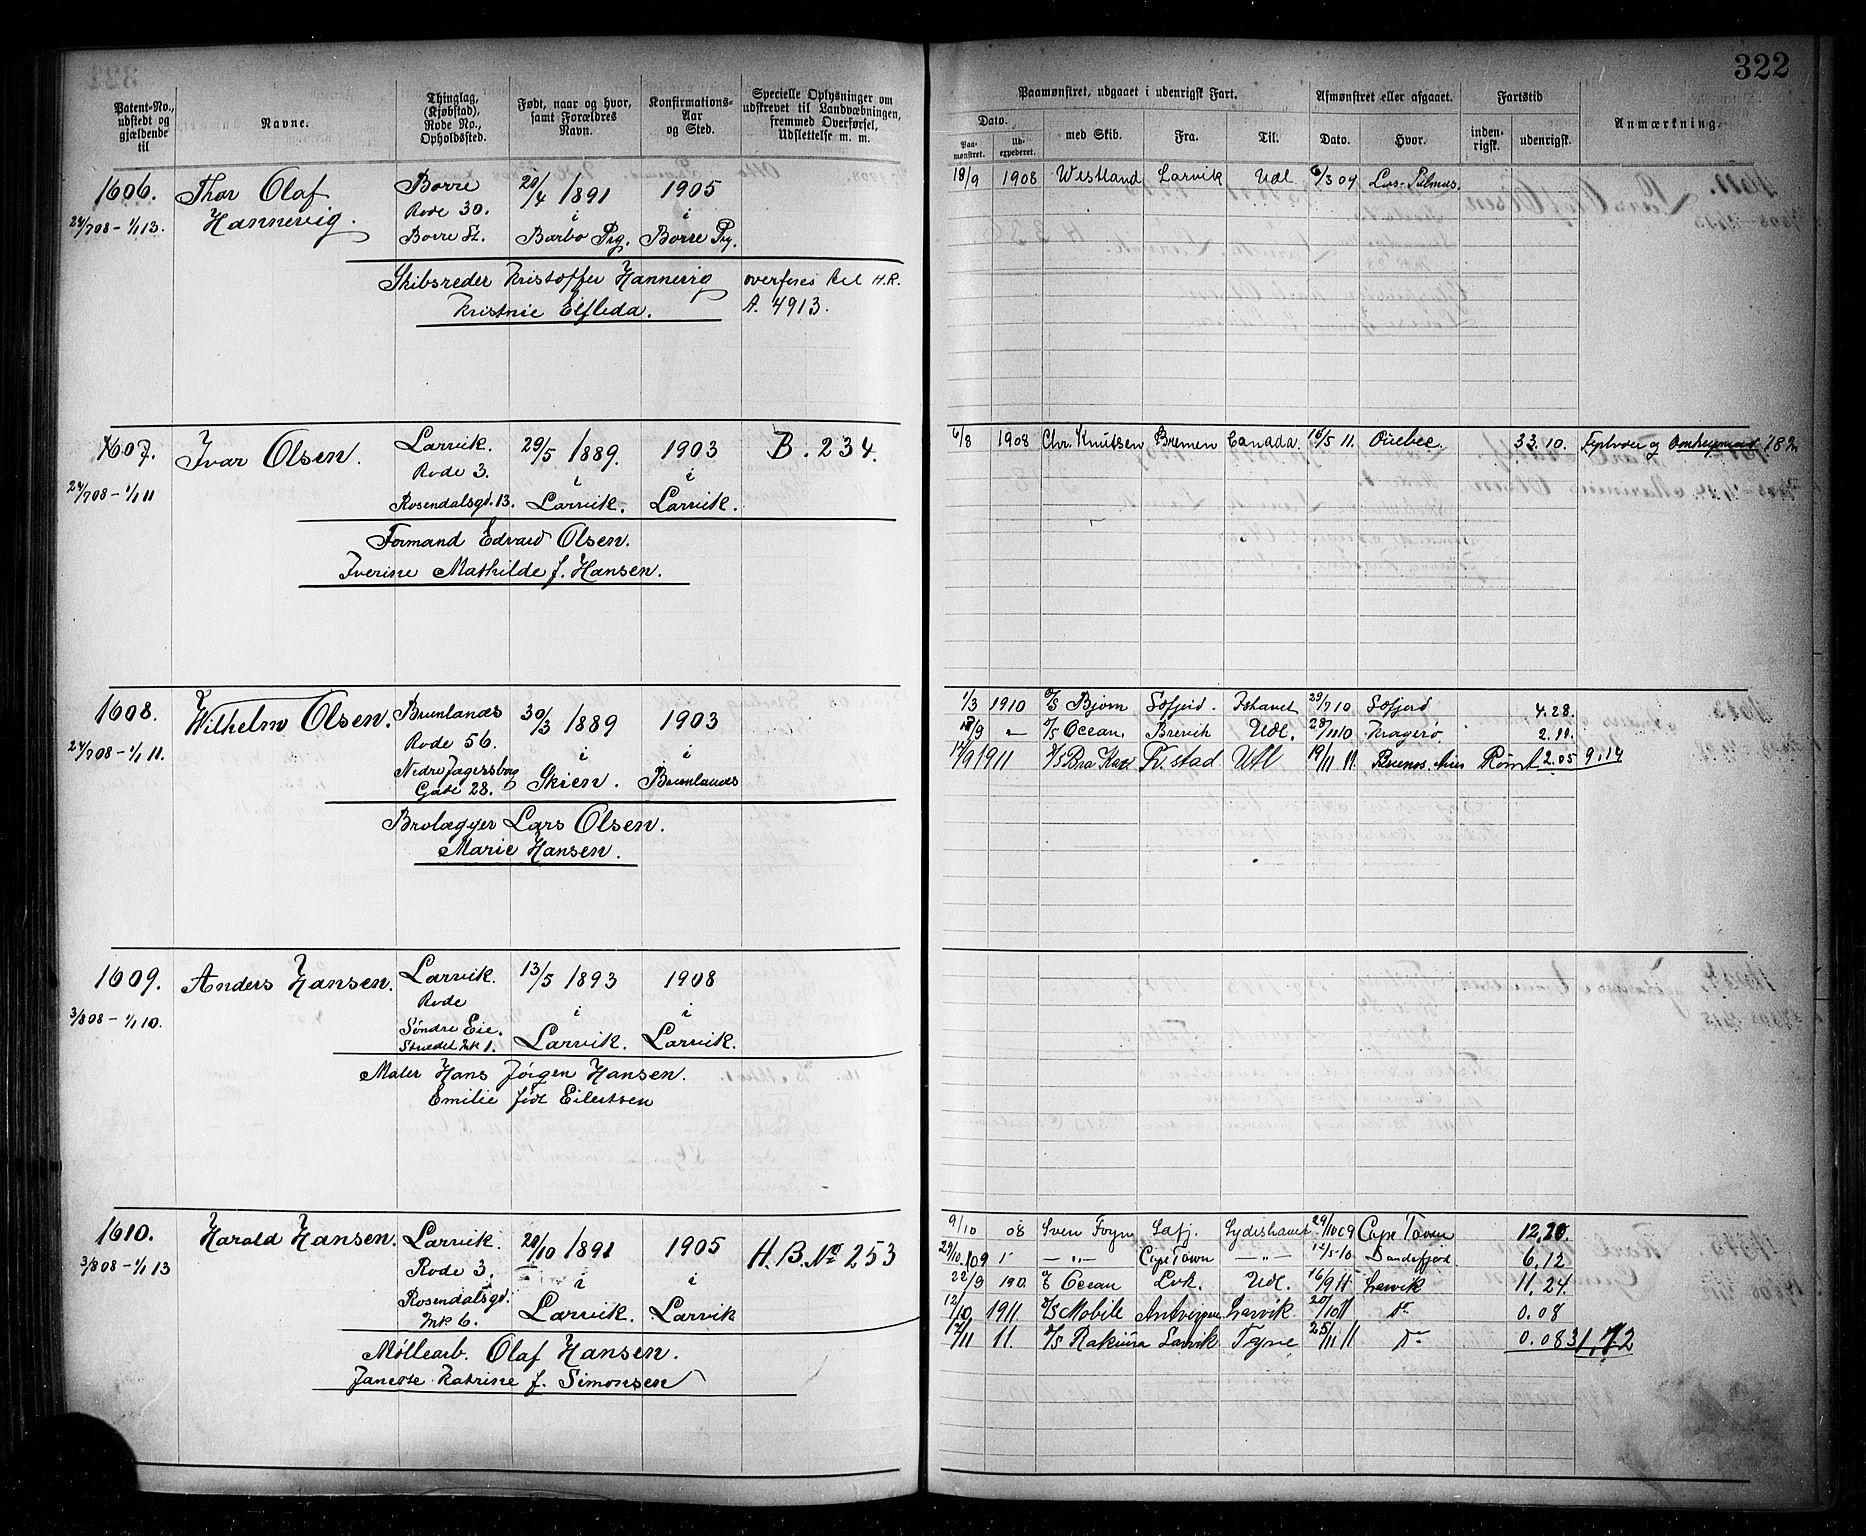 322
Patent-No., udstedt og gjældende til
Navne.
Thinglag, (Kjøbstad), Rode No., Opholdssted.
Født, naar og hvor, samt Forældres Navn.
Konfirmations-Aar og Sted.
Specielle Oplysninger om udskrevet til Landvæbningen, fremmed Overførsel, Udslettelse m. m.
Paamønstret, udgaaet i udenrigsk Fart.
Dato.
Paa-mønstret.
Ud-expederet.
med Skib.
Fra.
Til.
Afmønstret eller afgaaet.
Dato.
Hvor.
Fartstid
inden-rigsk.
udenrigsk.
Anmærkning.
1606. Thor Olaf Borre 20/4 1891 1905
Hannevig. Rode 30. i i
24/7 08 - 1/1 13. Borre St. Barbo Prg. Borre Prg.
Skibsreder Kristoffer Hannevig overføres til H.R.
Kristine Elfleda. A. 4913.
18/9 1908 Westland Larvik Udl. 6/3 09 Las-Palmas.
1607. Ivar Olsen. Larvik. 29/5 1889. 1903 B. 234.
Rode 3. i i
24/7 08 - 1/1 11 Rosendalsgd. 13. Larvik. Larvik.
Formand Edvard Olsen.
Iverine Mathilde f. Hansen.
6/8 1908 Chr. Knutsen Bremen Canada. 16/5 11. Quebec. 33.10.
1608. Wilhelm Olsen. Brunlanæs 30/3 1889 1903
Rode 56. i i
24/7 08 - 1/1 11. Nedre Jagersborg Gade 28. Skien. Brunlanæs
Brolægger Lars Olsen.
Marie Hansen.
1/3 1910 Bjørn Ishavet 29/7 10 4.28.
/9 - " - Ocean Brevik Udl. 28/11 10 Kragerø. 2.11.
14/9 1911 Bra Kar Fr.stad Udl 19/11 11. Buenos. Aires Rømt 2.05 9.14
1609. Anders Hansen. Larvik. 13/5 1893 1908
Rode i i
3/8 08 - 1/1 10. Søndre Eie. Larvik. Larvik.
Strædet Mk 1.
Maler Hans Jørgen Hansen.
Emilie født Eilertsen
1610. Harald Hansen. Larvik. 20/10 1891 1905 H.B. No 253
3/8 08 - 1/1 13 Rode 3. i i
Rosendalsgd. Mk 6. Larvik. Larvik
Møllearb. Olaf Hansen.
Katrine f. Simonsen
9/10 08 Sven Foyn Sydishavet 29/10 09 Cape Town 12.20.
29/10. 09 - " - Cape Town - " - 12/5 10 Sandefjord. 6.12
22/9 Ocean Lvk. Udl. 16/9 11. Larvik 11.24.
12/10 1911 Mobile Antwerpen Larvik 20/10 11 Do 0.08
14/11 11. Larvik Tyne 25/11 11 Do 0.08 31.12